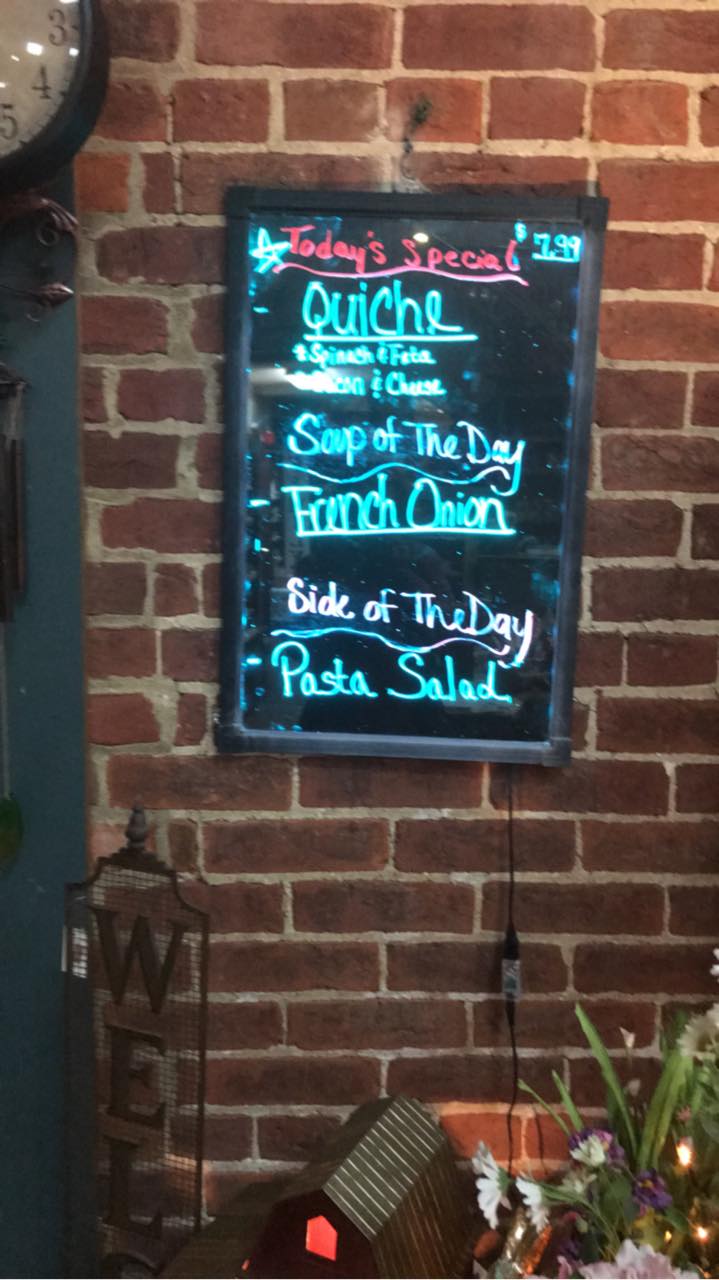 3
4
5
Today's Special $7.99
Quiche
*Spinach & Feta
*Bacon & Cheese
Soup of The Day
French Onion
Side of The Day
Pasta Salad
W
E
L